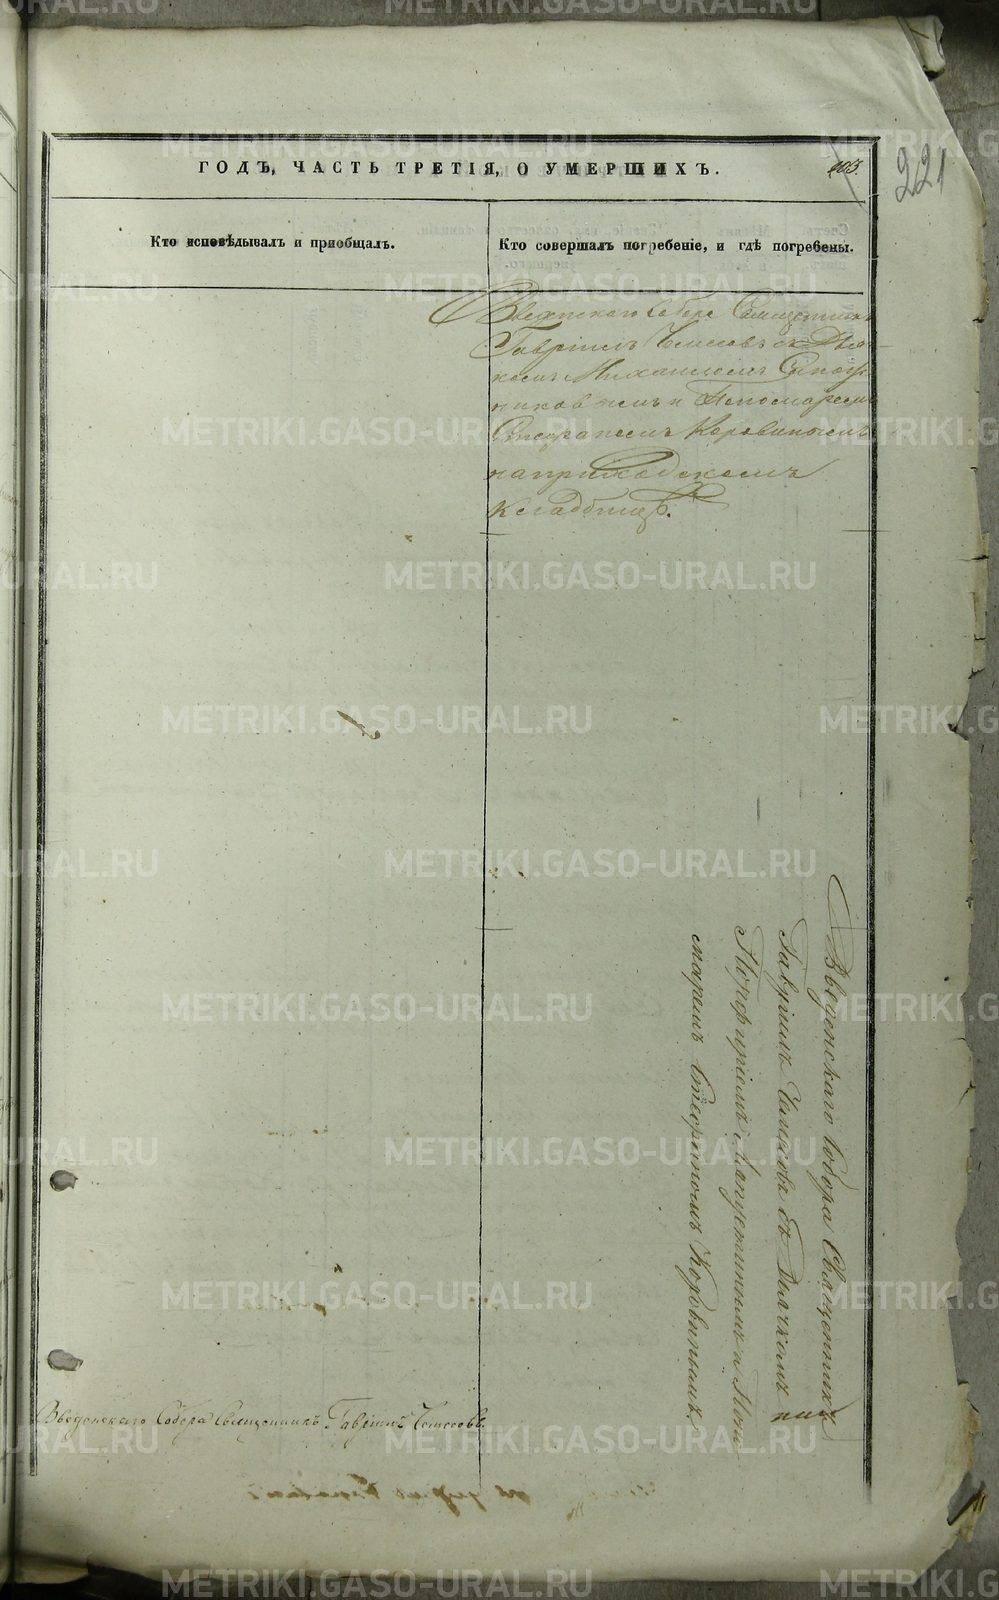 METRIKI.GASO-URAL.RU
ГОДЪ, ЧАСТЬ ТРЕТІЯ, О УМЕРШИХЪ.
103.
221
Кто исповѣдывалъ и приобщалъ.
Кто совершалъ погребеніе, и гдѣ погребены.
Введенскаго Собора Священникъ
Гавріилъ съ Дья-
комъ Михаиломъ Сапож-
никовымъ и Пономаремъ
Стефаномъ Коровинымъ
на приходскомъ
кладбищѣ.
Введенскаго Собора Священникъ
Гавріилъ съ Дьячкомъ
Порфиріемъ Капустинымъ и Поно
маремъ Стефаномъ Коровинымъ
Введенскаго Собора Священникъ Гавріилъ